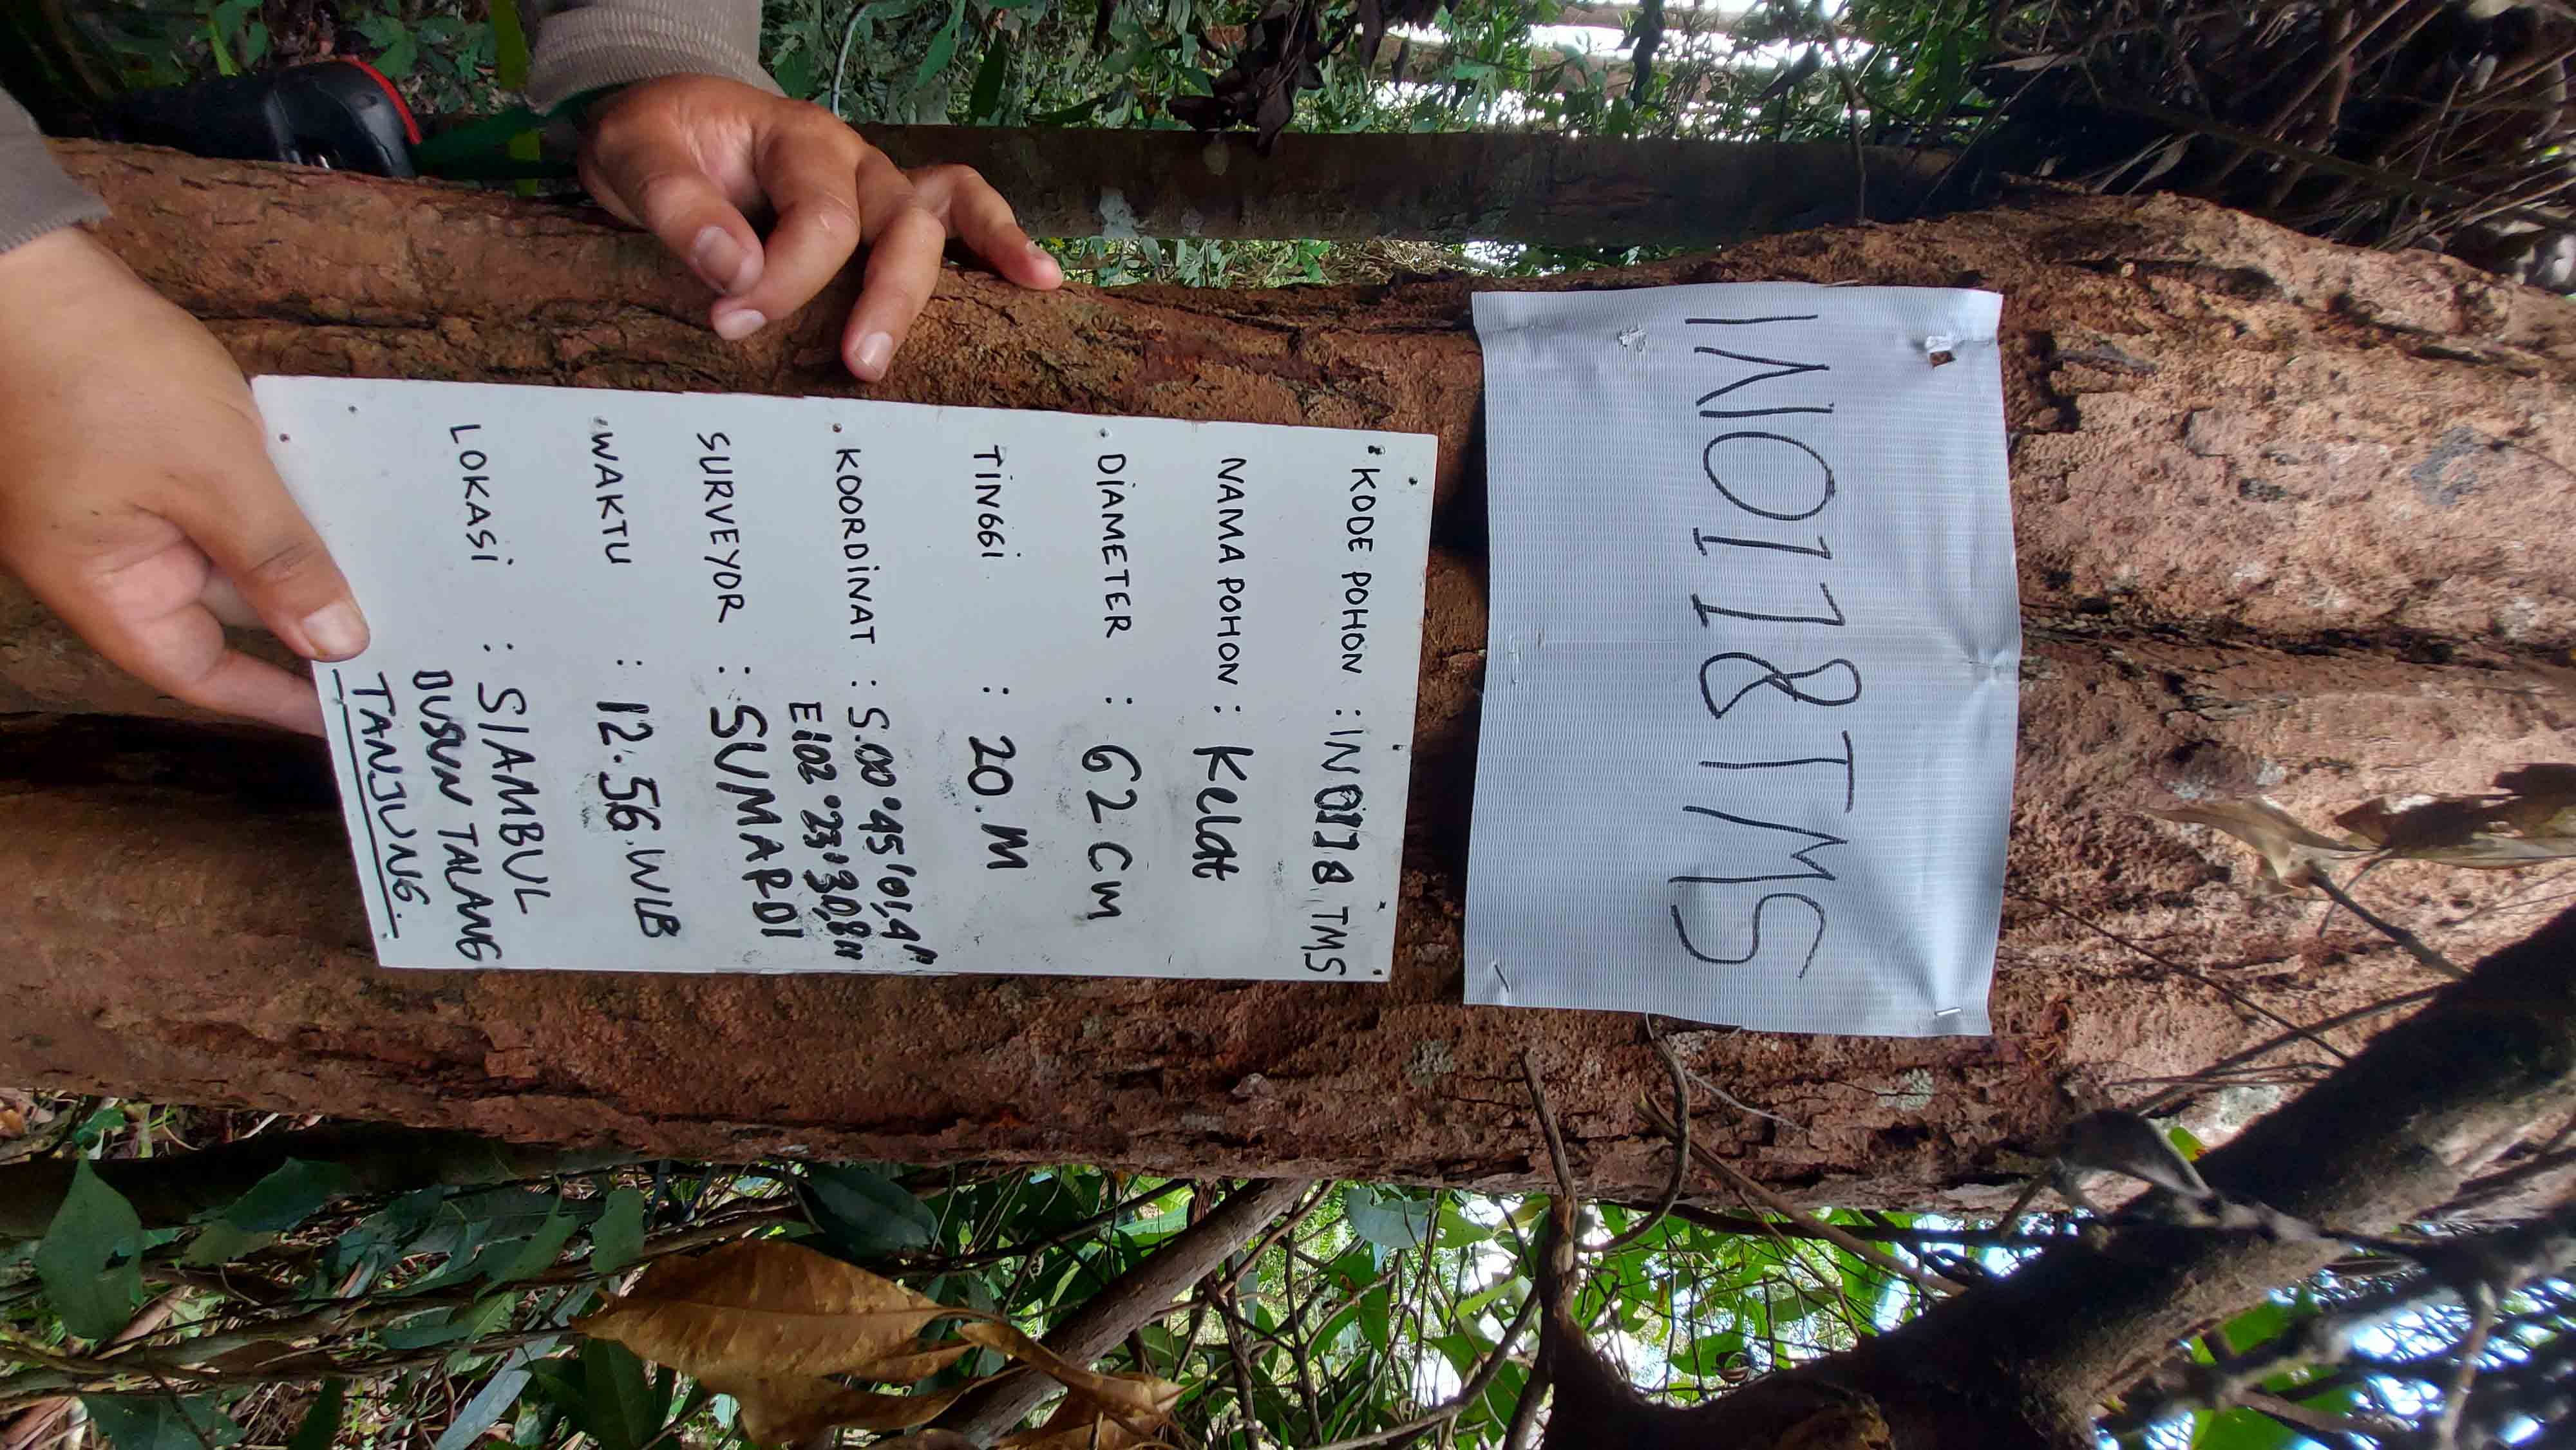 INO118TMS
KODE POHON : INO118 TMS
NAMA POHON : Kelat
DIAMETER : 62 CM
TINGGI : 20. M
KOORDINAT : S.00°45'01,4"
E102°23'30,8"
SURVEYOR : SUMARDI
WAKTU : 12.56.WIB
LOKASI : SIAMBUL
DUSUN TALANG
TANJUNG.